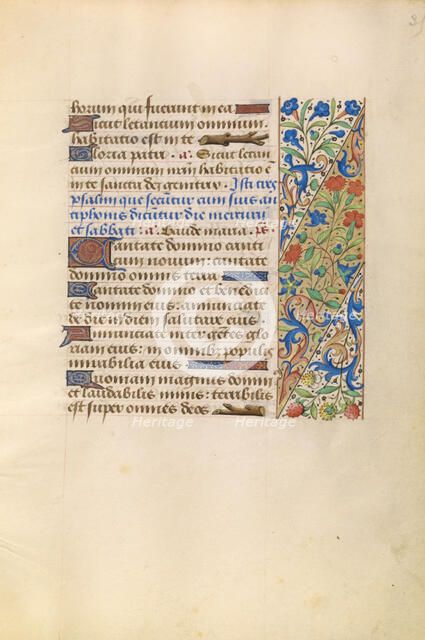 horum qui fuerunt in ea
Sicut letancium omnium
habitatio est in te
Gloria patri. a. Sicut letan
cium omnium nr̄m habitatio ē
in te sancta dei genitrix. Isti tres
psalmi que secūtur cum suis an
tiphonis dicūtur die mercurii
et sabbati. a. Gaude maria. ps.
Cantate domino canti
cum novum: cantate
domino omnis terra
Cantate domino et benedici
te nomini eius: annunciate
de die in diem salutare eius
Annunciate inter gētes glo
riam eius: in omnibz populis
mirabilia eius
Quoniam magnus domin⁹
et laudabilis nimis: terribilis
est super omnes deos
Heritage Heritage
Heritage Heritage